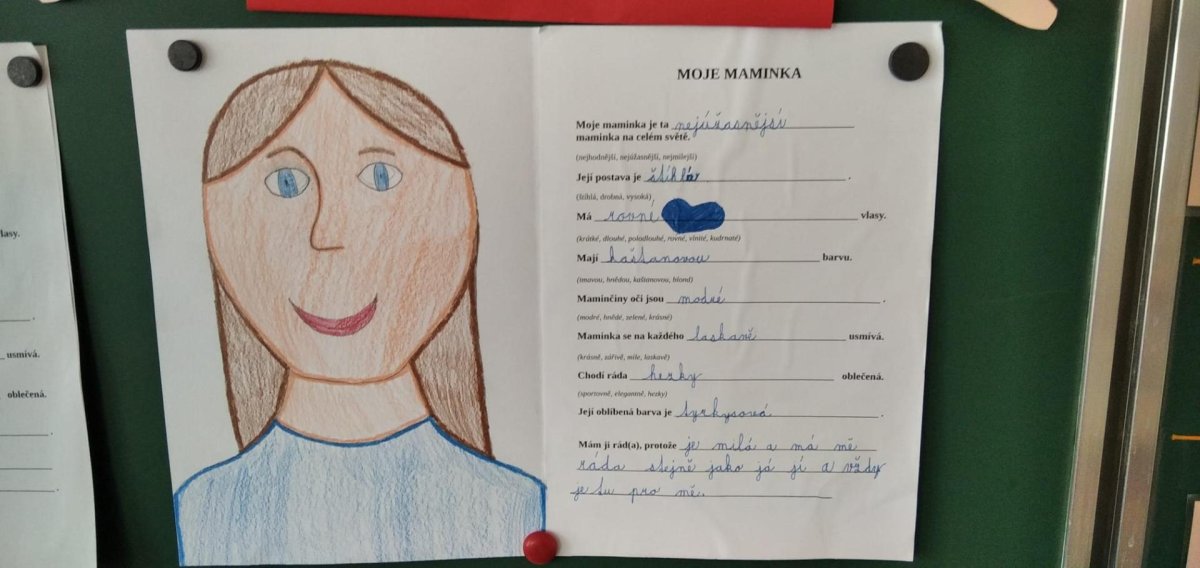 MOJE MAMINKA
Moje maminka je ta nejúžasnější
maminka na celém světě.
(nejhodnější, nejúžasnější, nejmilejší)
Její postava je štíhlá.
(štíhlá, drobná, vysoká)
Má rovné vlasy.
(krátké, dlouhé, polodlouhé, rovné, vlnité, kudrnaté)
Mají kaštanovou barvu.
(tmavou, hnědou, kaštanovou, blond)
Maminčiny oči jsou modré.
(modré, hnědé, zelené, krásné)
Maminka se na každého laskavě usmívá.
(krásně, zářivě, mile, laskavě)
Chodí ráda hezky oblečená.
(sportovně, elegantně, hezky)
Její oblíbená barva je tyrkysová.
Mám ji rád(a), protože je milá a má mě
ráda stejně jako já jí a vždy
je tu pro mě.
vlasy.
usmívá.
oblečená.